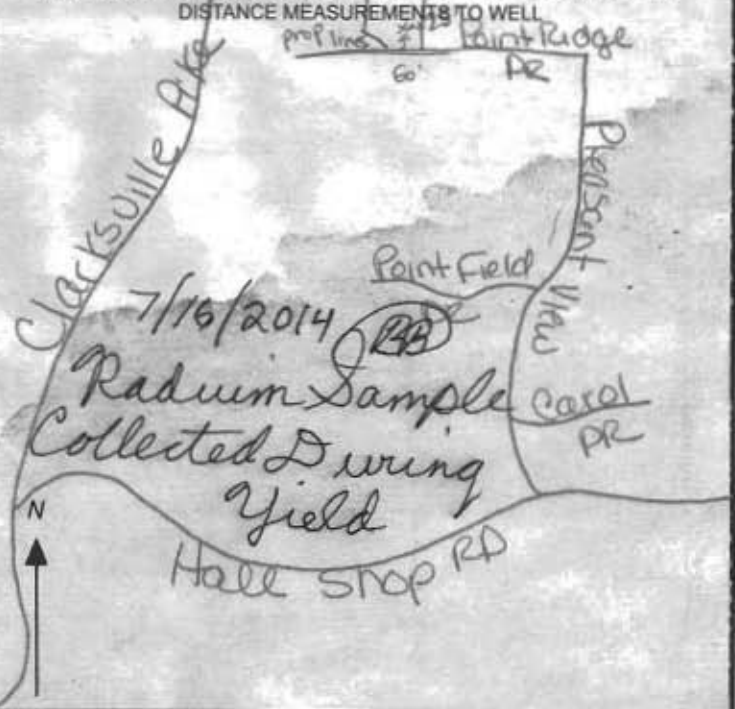 DISTANCE MEASUREMENTS TO WELL
prop lines
Point Ridge
60'
DR
Clarksville Pike
Pleasant View
Point Field
DR
7/16/2014 BB
Radium Sample
Collected During
Yield
Carol
DR
N
Hall Shop RD